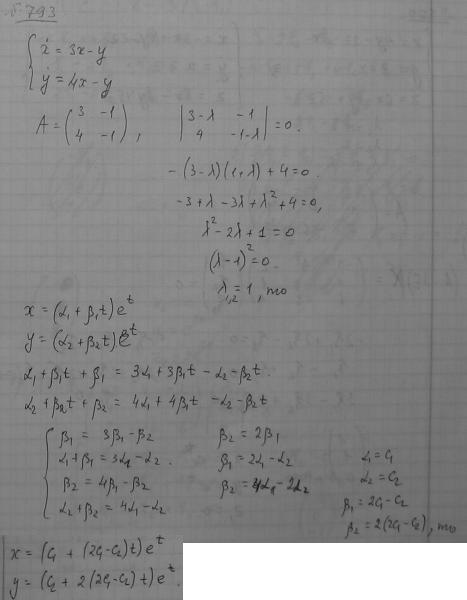 №793
{ ẋ = 3x - y
ẏ = 4x - y
A = (3 -1
4 -1), |3-λ -1
4 -1-λ| = 0.
-(3-λ)(1+λ) + 4 = 0.
-3 + λ - 3λ + λ² + 4 = 0,
λ² - 2λ + 1 = 0
(λ - 1)² = 0.
λ₁,₂ = 1, то
x = (α₁ + β₁t)eᵗ
y = (α₂ + β₂t)eᵗ
α₁ + β₁t + β₁ = 3α₁ + 3β₁t - α₂ - β₂t.
α₂ + β₂t + β₂ = 4α₁ + 4β₁t - α₂ - β₂t
{ β₁ = 3β₁ - β₂
α₁ + β₁ = 3α₁ - α₂.
β₂ = 4β₁ - β₂
α₂ + β₂ = 4α₁ - α₂
β₂ = 2β₁
β₁ = 2α₁ - α₂
β₂ = 4α₁ - 2α₂
α₁ = C₁
α₂ = C₂
β₁ = 2C₁ - C₂
β₂ = 2(2C₁ - C₂), то
x = (C₁ + (2C₁ - C₂)t)eᵗ
y = (C₂ + 2(2C₁ - C₂)t)eᵗ.